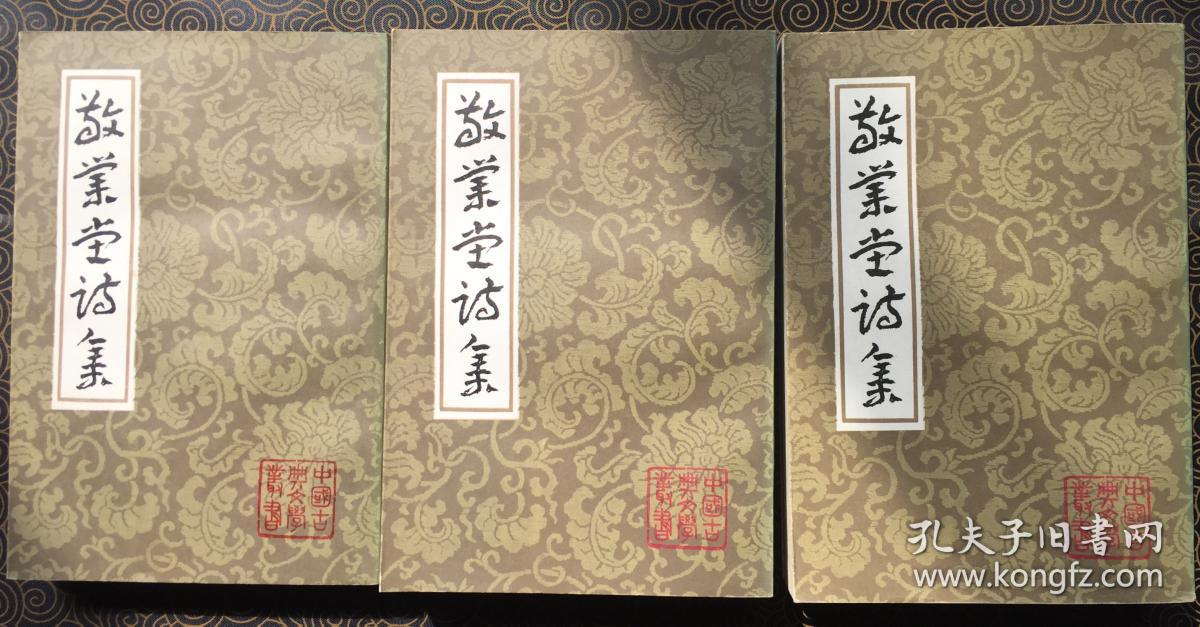 敬業堂诗集
中國古
典文學
叢書
敬業堂诗集
中國古
典文學
叢書
敬業堂诗集
中國古
典文學
叢書
孔夫子旧书网
www.kongfz.com